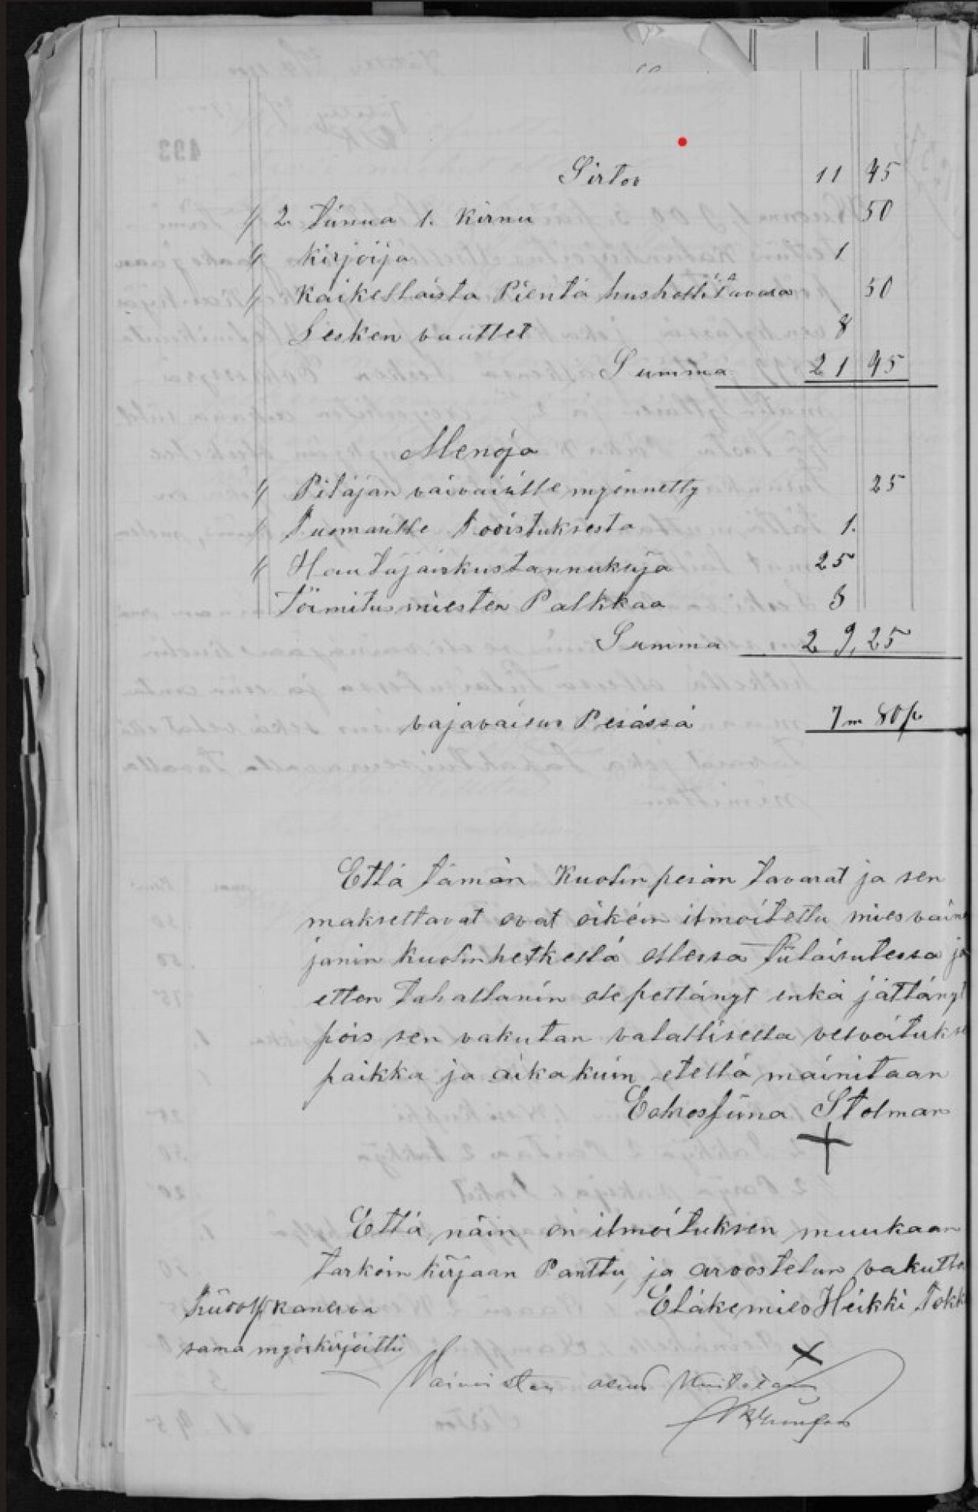 Sirtoo 11 45
" 2 Tiinua 1. Kirnu 50
" Kirjoija 1
" Kaikellaista Pientä hushollitavara 50
Lesken vaattet 8
Summa 21 45
Menoja
" Pitäjän vaivaisille myönnetty 25
" Tuomarille Tooistuksesta 1.
" Hautajaiskustannuksija 25
Toimitusmiesten Palkkaa 3
Summa 29,25
vajavaisus Pesässä 7 m 80 p
Että tämän Kuolinpesän tavarat ja sen
maksettavat ovat oikein ilmoitettu miesvain
janin kuolinhetkellä ollessa tilaisutessa ja
etten tahallanin ole pettänyt enkä jättänyt
pois sen vakutan valallisella velvoituks
paikka ja aika kuin etellä mainitaan
Stolman
Että näin on ilmoituksen muukaan
tarkoin kirjaan Panttu ja arvostelun vakutta
Rudolf Kanerva Eläkemies Heikki Tokk
sama myöskirjoitti